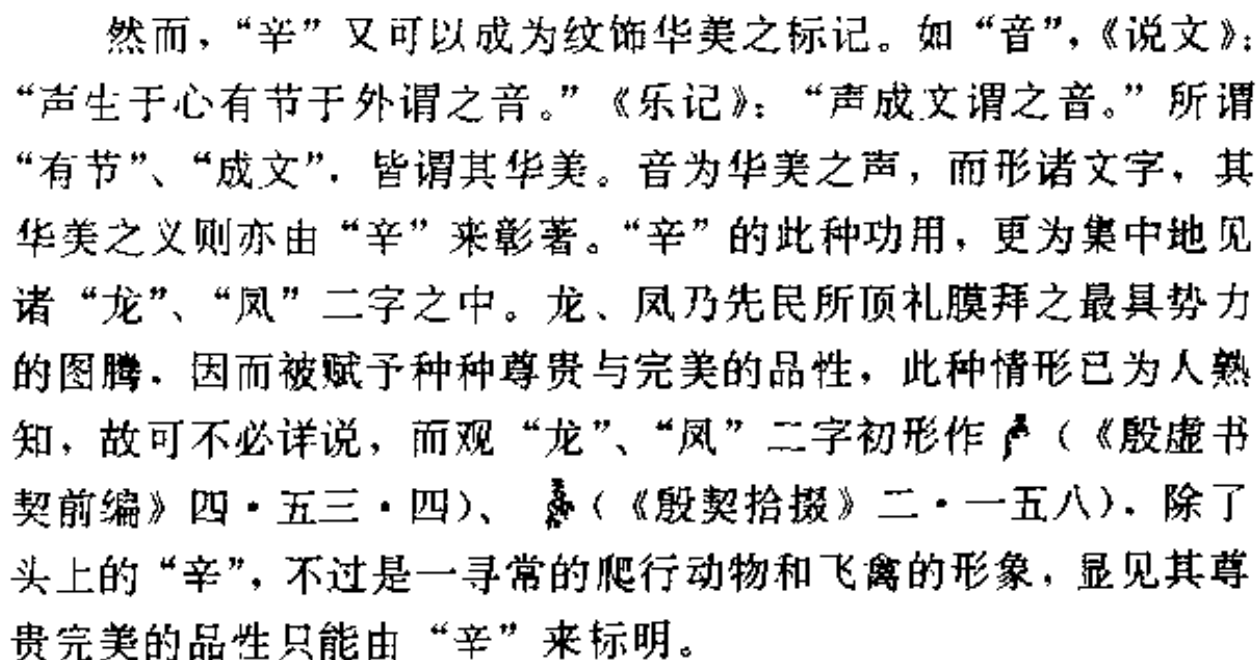 然而，“辛”又可以成为纹饰华美之标记。如“音”，《说文》：
“声生于心有节于外谓之音。”《乐记》：“声成文谓之音。”所谓
“有节”、“成文”，皆谓其华美。音为华美之声，而形诸文字，其
华美之义则亦由“辛”来彰著。“辛”的此种功用，更为集中地见
诸“龙”、“凤”二字之中。龙、凤乃先民所顶礼膜拜之最具势力
的图腾，因而被赋予种种尊贵与完美的品性，此种情形已为人熟
知，故可不必详说，而观“龙”、“凤”二字初形作（《殷虚书
契前编》四·五三·四）、（《殷契拾掇》二·一五八），除了
头上的“辛”，不过是一寻常的爬行动物和飞禽的形象，显见其尊
贵完美的品性只能由“辛”来标明。